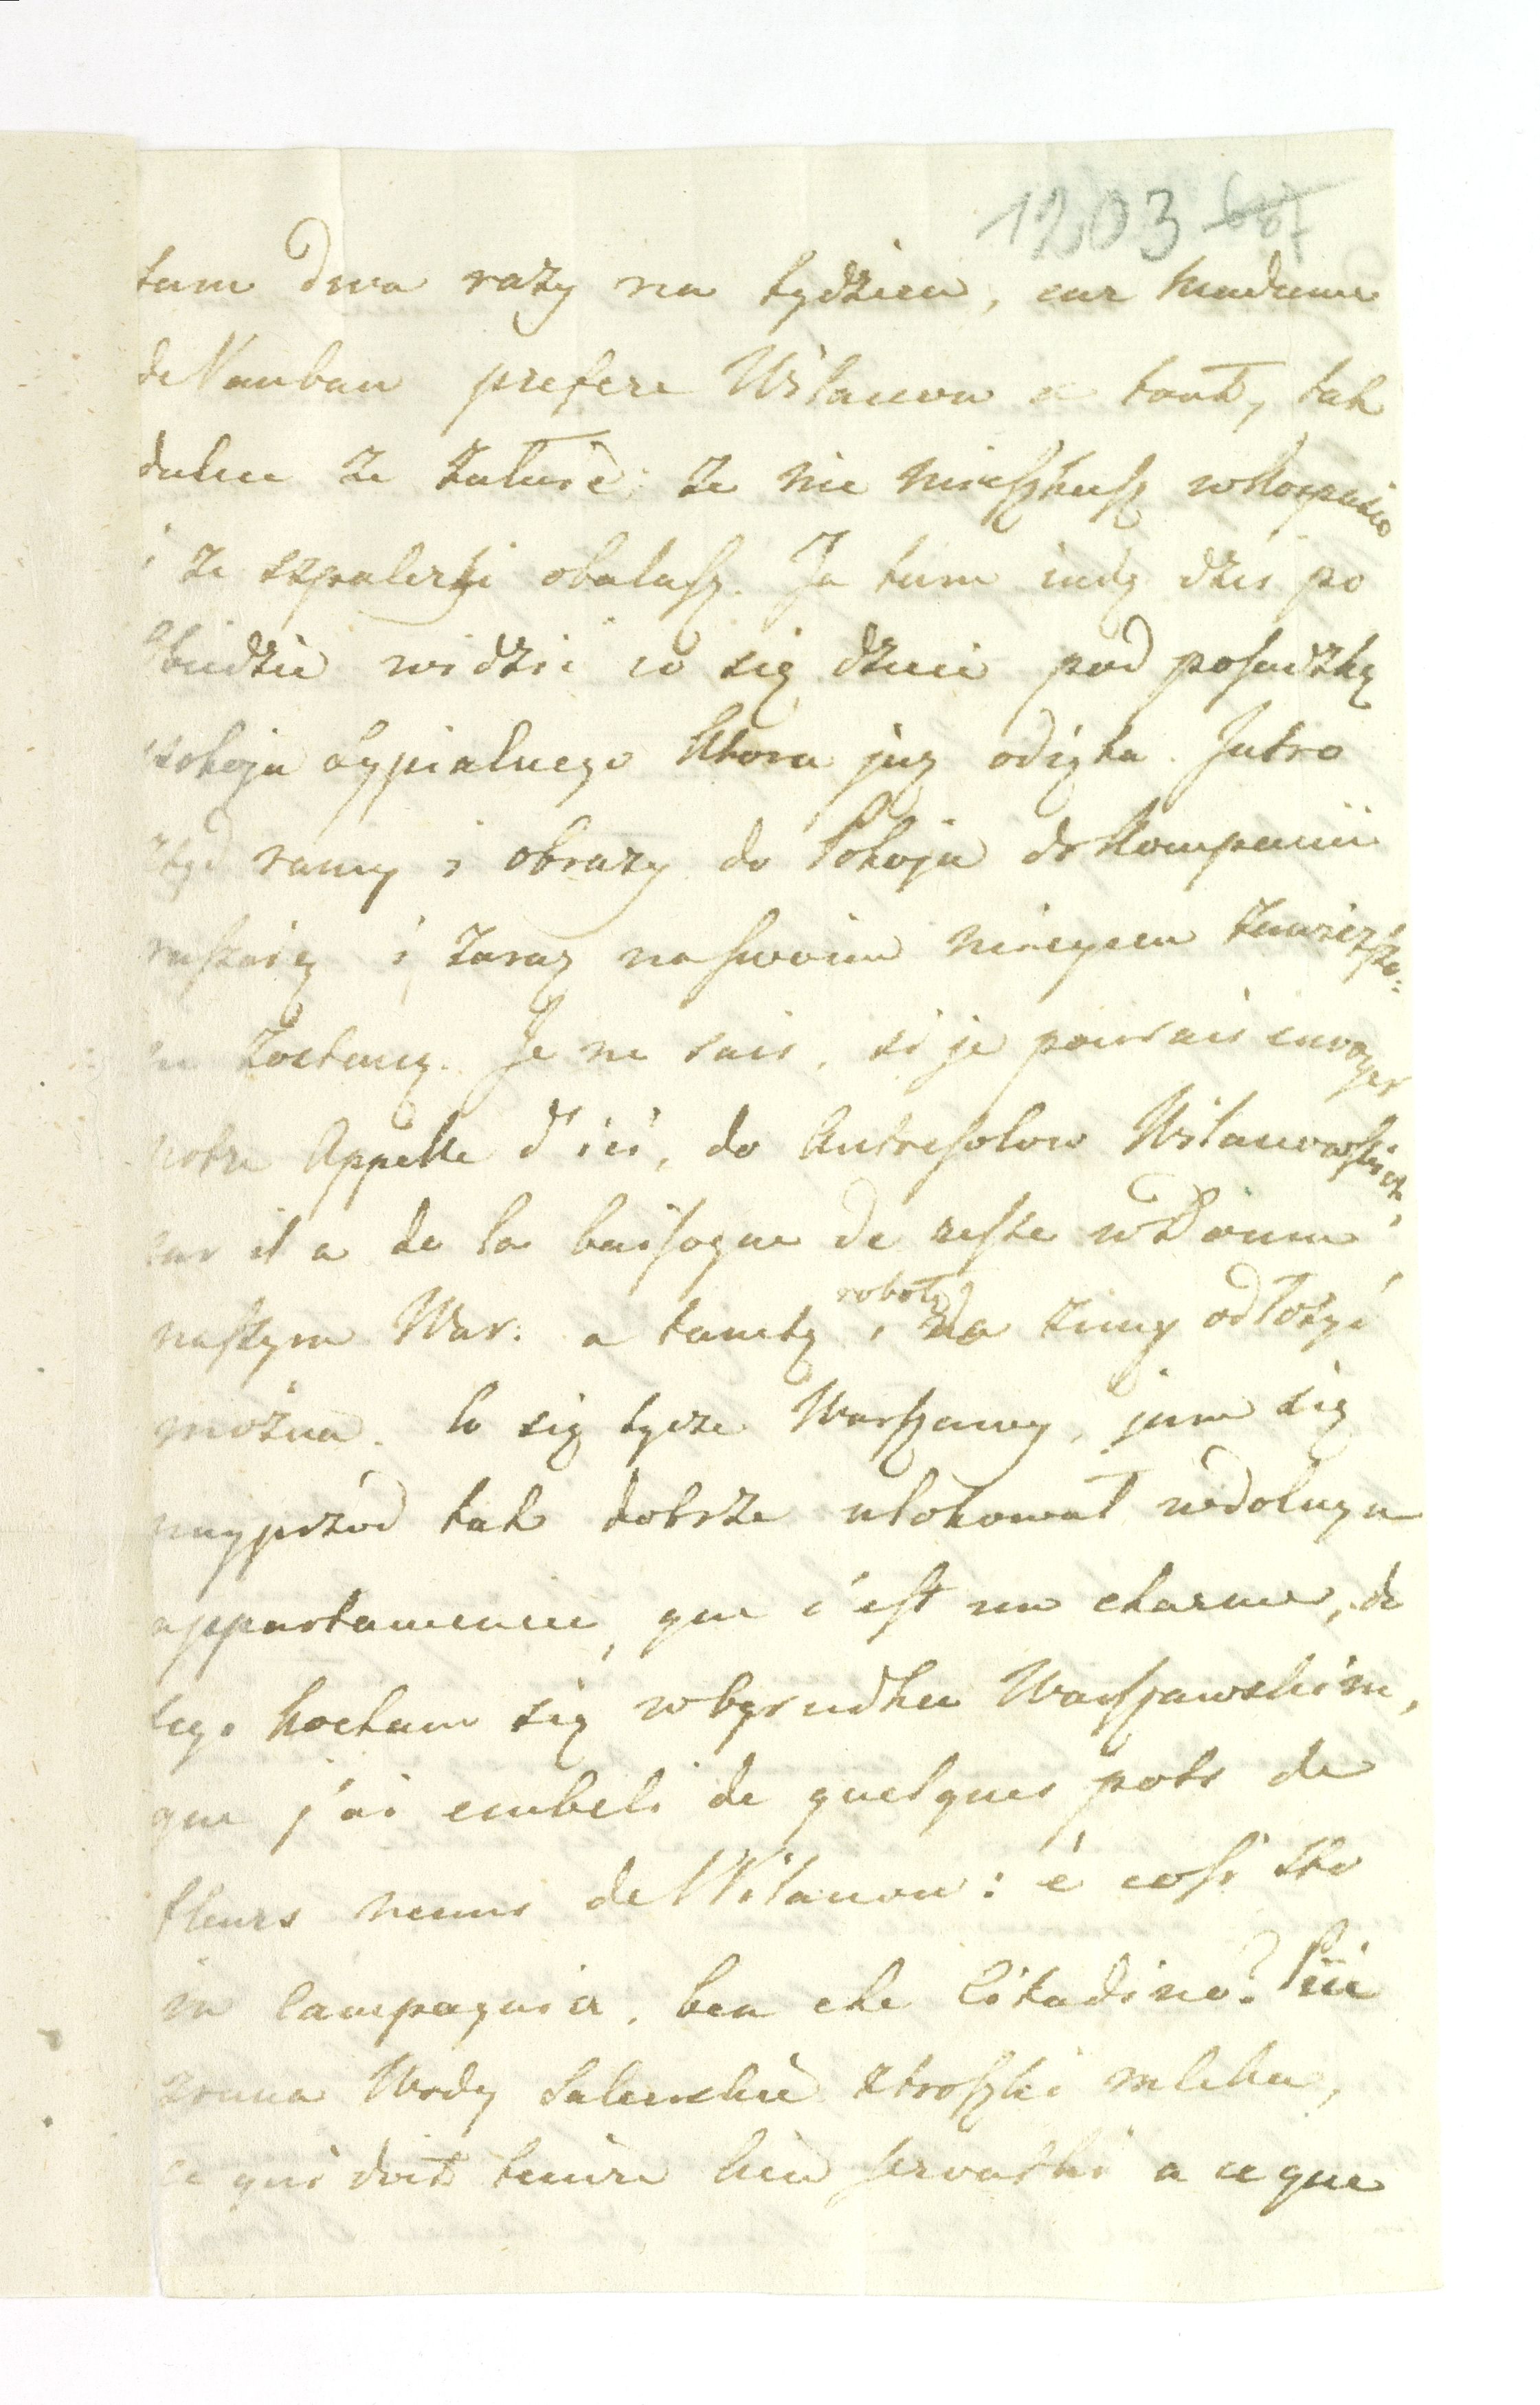 1203 687
tam dwa razy na tydzień, car Madame
de Vauban prefere Wilanow a tout, tak
dalece że żałuie: że nie mieszkasz w
i że szpalerki obalasz. Ja tam iadę dziś po
Obiedzie widzić co się dzieie pod posadzką
pokoju sypialnego ktora już odięta. Jutro
ztąd ramy i obrazy do Pokoju do Kompanii
ruszaią i zaraz na swoim mieyscu
zostaną. Je ne sais, si je pourais envoyer
notre Appelle d'ici, do Antresolow Wilanowskich,
car il a de la baisogne de reste w Domu
naszym War: a tamtą robotę i na zimę odłożyć
można. Co się tycze Warszawy, jam się
nayprzod tak dobrze ulokował w dolnym
appartamencie, que c'est un charme, do
tego kocham się w ogrudku Warszawskim,
que j'ai embeli de quelques pots de
fleurs venus de Wilanow: è cosi sto
in Campagnia, ben che Citadino? Piie
zrana Wody Selcerskie z troszki mleka,
ce qui doit tenire lieu serwatki a ce que